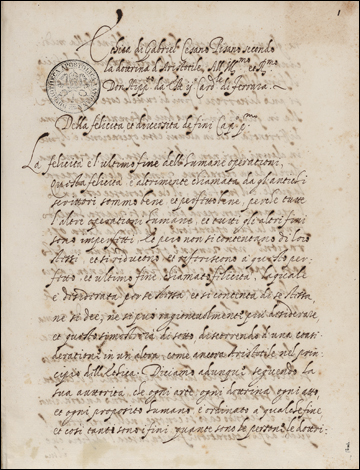 1
Ethica di Gabriel Cesano Pisano secondo
la dottrina d'Aristotile, All' Ill.mo et R.mo
Don Hipp.to da Este Card.le di Ferrara.
Della felicità et diversità de fini Cap.o p.mo
La felicità è l'ultimo fine delle humane operationi,
questa felicità è altrimente chiamata da gli antichi
scrittori sommo bene, et perfetto bene, perche tutte
l'altre operationi humane, et tutti gli altri fini
sono imperfetti, et pero non si contengano di loro
stessi, et si riducono et referiscono a questo per-
fetto, et ultimo fine chiamato felicità, la quale
è desiderata per se stessa, et si contenta di se stessa
ne si dee, ne si puo ragionevolmente piu desiderare,
et questo si mostrerà di sotto discorrendo d'una consi-
deratione in un altra, come ancora Aristotile nel prin-
cipio dell'Ethica. Diciamo adunque seguendo la
sua autorità, che ogni arte, ogni dottrina, ogni atto,
et ogni proposito humano è ordinato a qualche fine,
et così tanti sono i fini, quante sono le